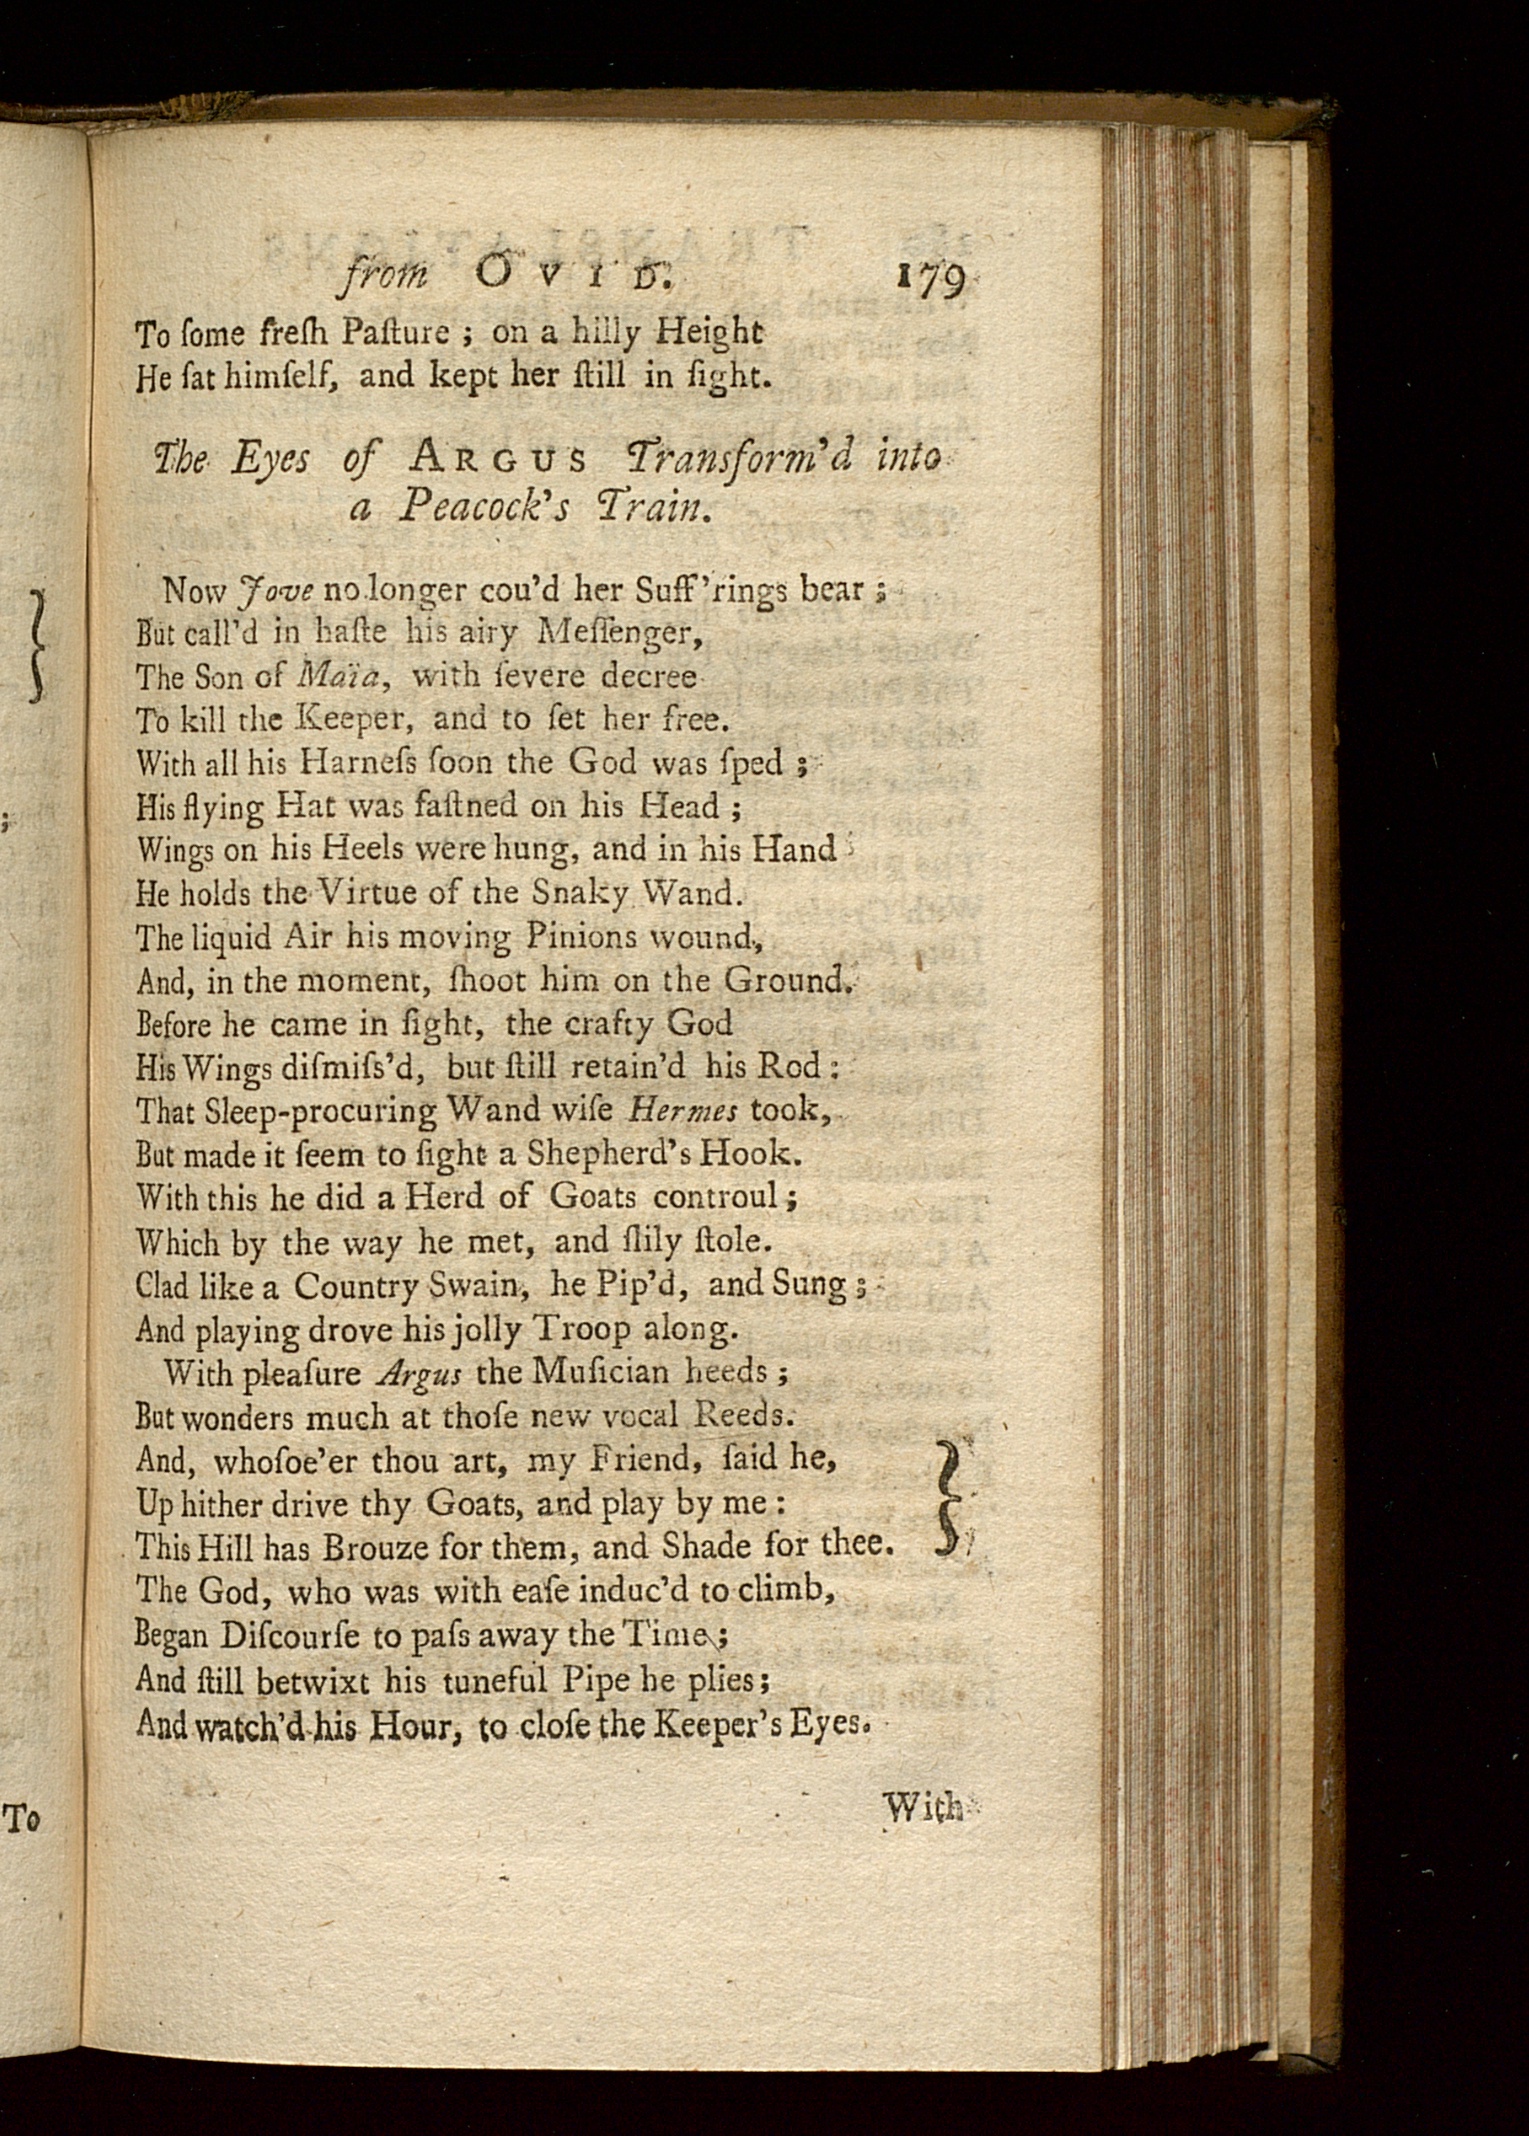 from OVID. 179
To ſome freſh Paſture ; on a hilly Height
He ſat himſelf, and kept her ſtill in ſight.
The Eyes of ARGUS Transform'd into
a Peacock's Train.
Now Jove no longer cou'd her Suff'rings bear ;
But call'd in haſte his airy Meſſenger,
The Son of Maïa, with ſevere decree
To kill the Keeper, and to ſet her free.
With all his Harneſs ſoon the God was ſped ;
His flying Hat was faſtned on his Head ;
Wings on his Heels were hung, and in his Hand
He holds the Virtue of the Snaky Wand.
The liquid Air his moving Pinions wound,
And, in the moment, ſhoot him on the Ground.
Before he came in ſight, the crafty God
His Wings diſmiſs'd, but ſtill retain'd his Rod :
That Sleep-procuring Wand wiſe Hermes took,
But made it ſeem to ſight a Shepherd's Hook.
With this he did a Herd of Goats controul ;
Which by the way he met, and ſlily ſtole.
Clad like a Country Swain, he Pip'd, and Sung ;
And playing drove his jolly Troop along.
With pleaſure Argus the Muſician heeds ;
But wonders much at thoſe new vocal Reeds.
And, whoſoe'er thou art, my Friend, ſaid he,
Up hither drive thy Goats, and play by me :
This Hill has Brouze for them, and Shade for thee.
The God, who was with eaſe induc'd to climb,
Began Diſcourſe to paſs away the Time ;
And ſtill betwixt his tuneful Pipe he plies ;
And watch'd his Hour, to cloſe the Keeper's Eyes.
With
To